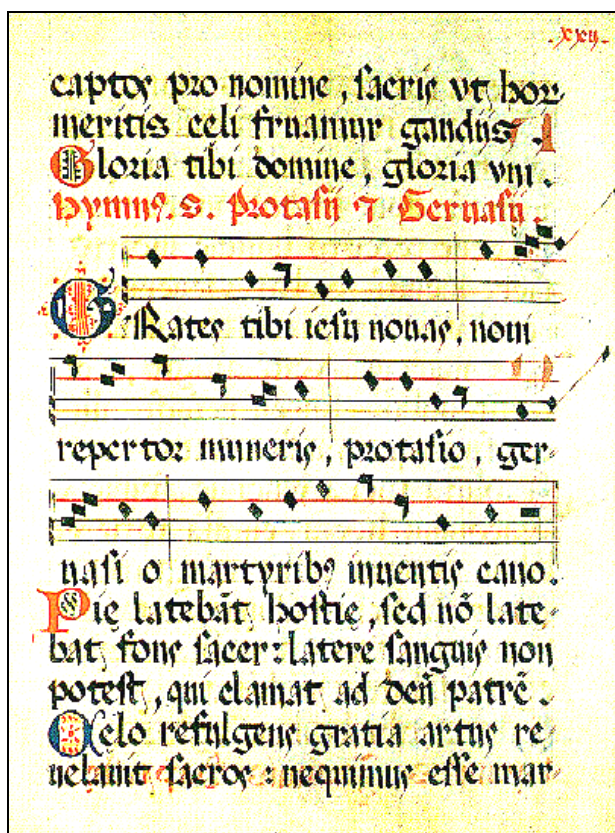 .xxij.
captos pro nomine, sacris vt hor
meritis celi fruamur gaudijs.
Gloria tibi domine, gloria vni.
Hymnꝰ. S. Protasij ⁊ Geruasij.
GRates tibi iesu nouas, noui
repertor muneris, protasio, ger-
uasi o martyribꝰ inuentis cano.
Pie latebāt hostie, sed nō late-
bat fons sacer: latere sanguis non
potest, qui clamat ad deū patrē.
Celo refulgens gratia artus re-
uelauit sacros: nequimus esse mar-